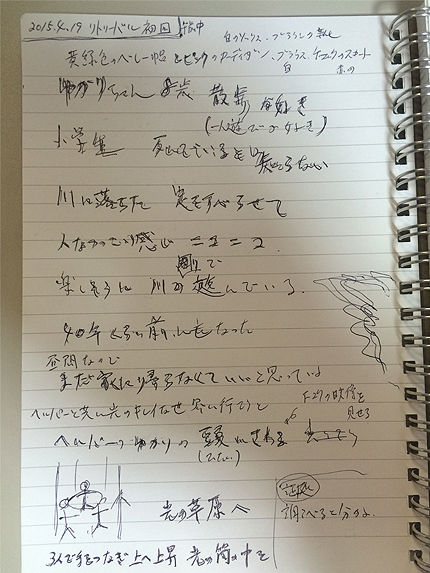 2015.4.19 リトリーバル 初回
黄緑色のベレー帽とピンクのカーディガン、ブラウス、チェックのスカート
白 赤い
ゆかりちゃん 8歳 散歩が好き
(一人遊びが好き)
小学生 死んでいると知らない
川に落ちた 足をすべらせて
人なつっこい感じ ニコニコ
楽しそうに 川で遊んでいる
40年くらい前に亡くなった
昼間なので
まだ家に帰らなくていいと思っている
ヘルパーと共に光のキレイな世界に行こうと
ヘルパーがゆかりの頭にさわる
(ひたい)
の映像を
見せる
光の草原へ
証拠
調べると
3人で手をつなぎ上へ上昇 光の筒の中を